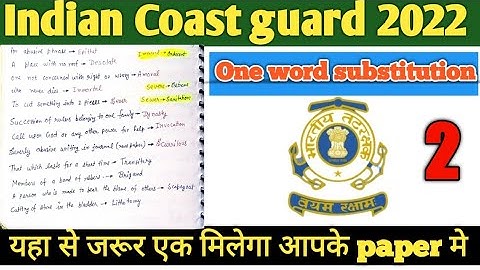 Indian Coast guard 2022
An abusive phrase → Epithet
A place with no roof → Desolate
One not concerned with right or wrong → Amoral
who never dies → Immortal
To cut something into 2 pieces → Sever
Succession of rulers belonging to one family → Dynasty
Call upon God or any other power for help → Invocation
writing in
That which lasts for a short time → Transitory
Members of a band of robbers → Brigand
A person who is made to bear the blame of others → Scapegoat
Cutting of stone in the bladder → Lithotomy
One word substitution
भारतीय तटरक्षक
वयम रक्षामः
2
यहा से जरूर एक मिलेगा आपके paper मे